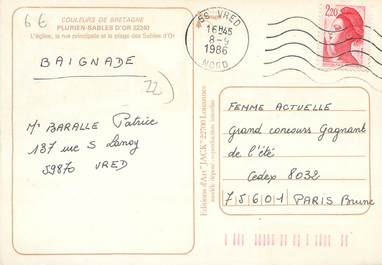 6 €
COULEURS DE BRETAGNE
PLURIEN-SABLES D'OR 22240
L'église, la rue principale et la plage des Sables d'Or
BAIGNADE
22
Mr BARALLE Patrice
187 rue S Lanoy
59870 VRED
59 VRED
16H45
1986
NORD
2,20
Editions d'Art "JACK" 22700 Louannec
modèle déposé - reproduction interdite
FEMME ACTUELLE
Grand concours Gagnant
de l'été
Cedex 8032
75601 PARIS Brune